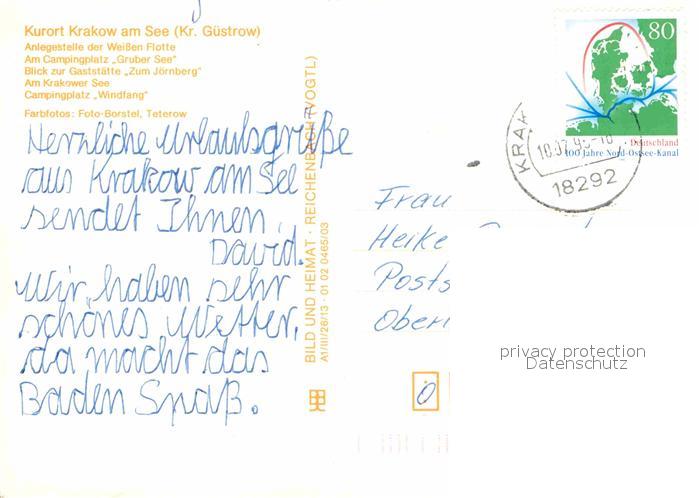 Kurort Krakow am See (Kr. Güstrow)
Anlegestelle der Weißen Flotte
Am Campingplatz „Gruber See"
Blick zur Gaststätte „Zum Jörnberg"
Am Krakower See
Campingplatz „Windfang"
Farbfotos: Foto-Borstel, Teterow
Herzliche Urlaubsgrüße
aus Krakow am See
sendet Ihnen,
David.
Wir haben sehr
schönes Wetter,
da macht das
Baden Spaß.
BILD UND HEIMAT · REICHENBACH (VOGTL)
A1/III/26/13 · 01 02 0465/03
80
Deutschland
100 Jahre Nord-Ostsee-Kanal
KRAK
18292
Frau
Heike
Posts
Ober
0
privacy protection
Datenschutz